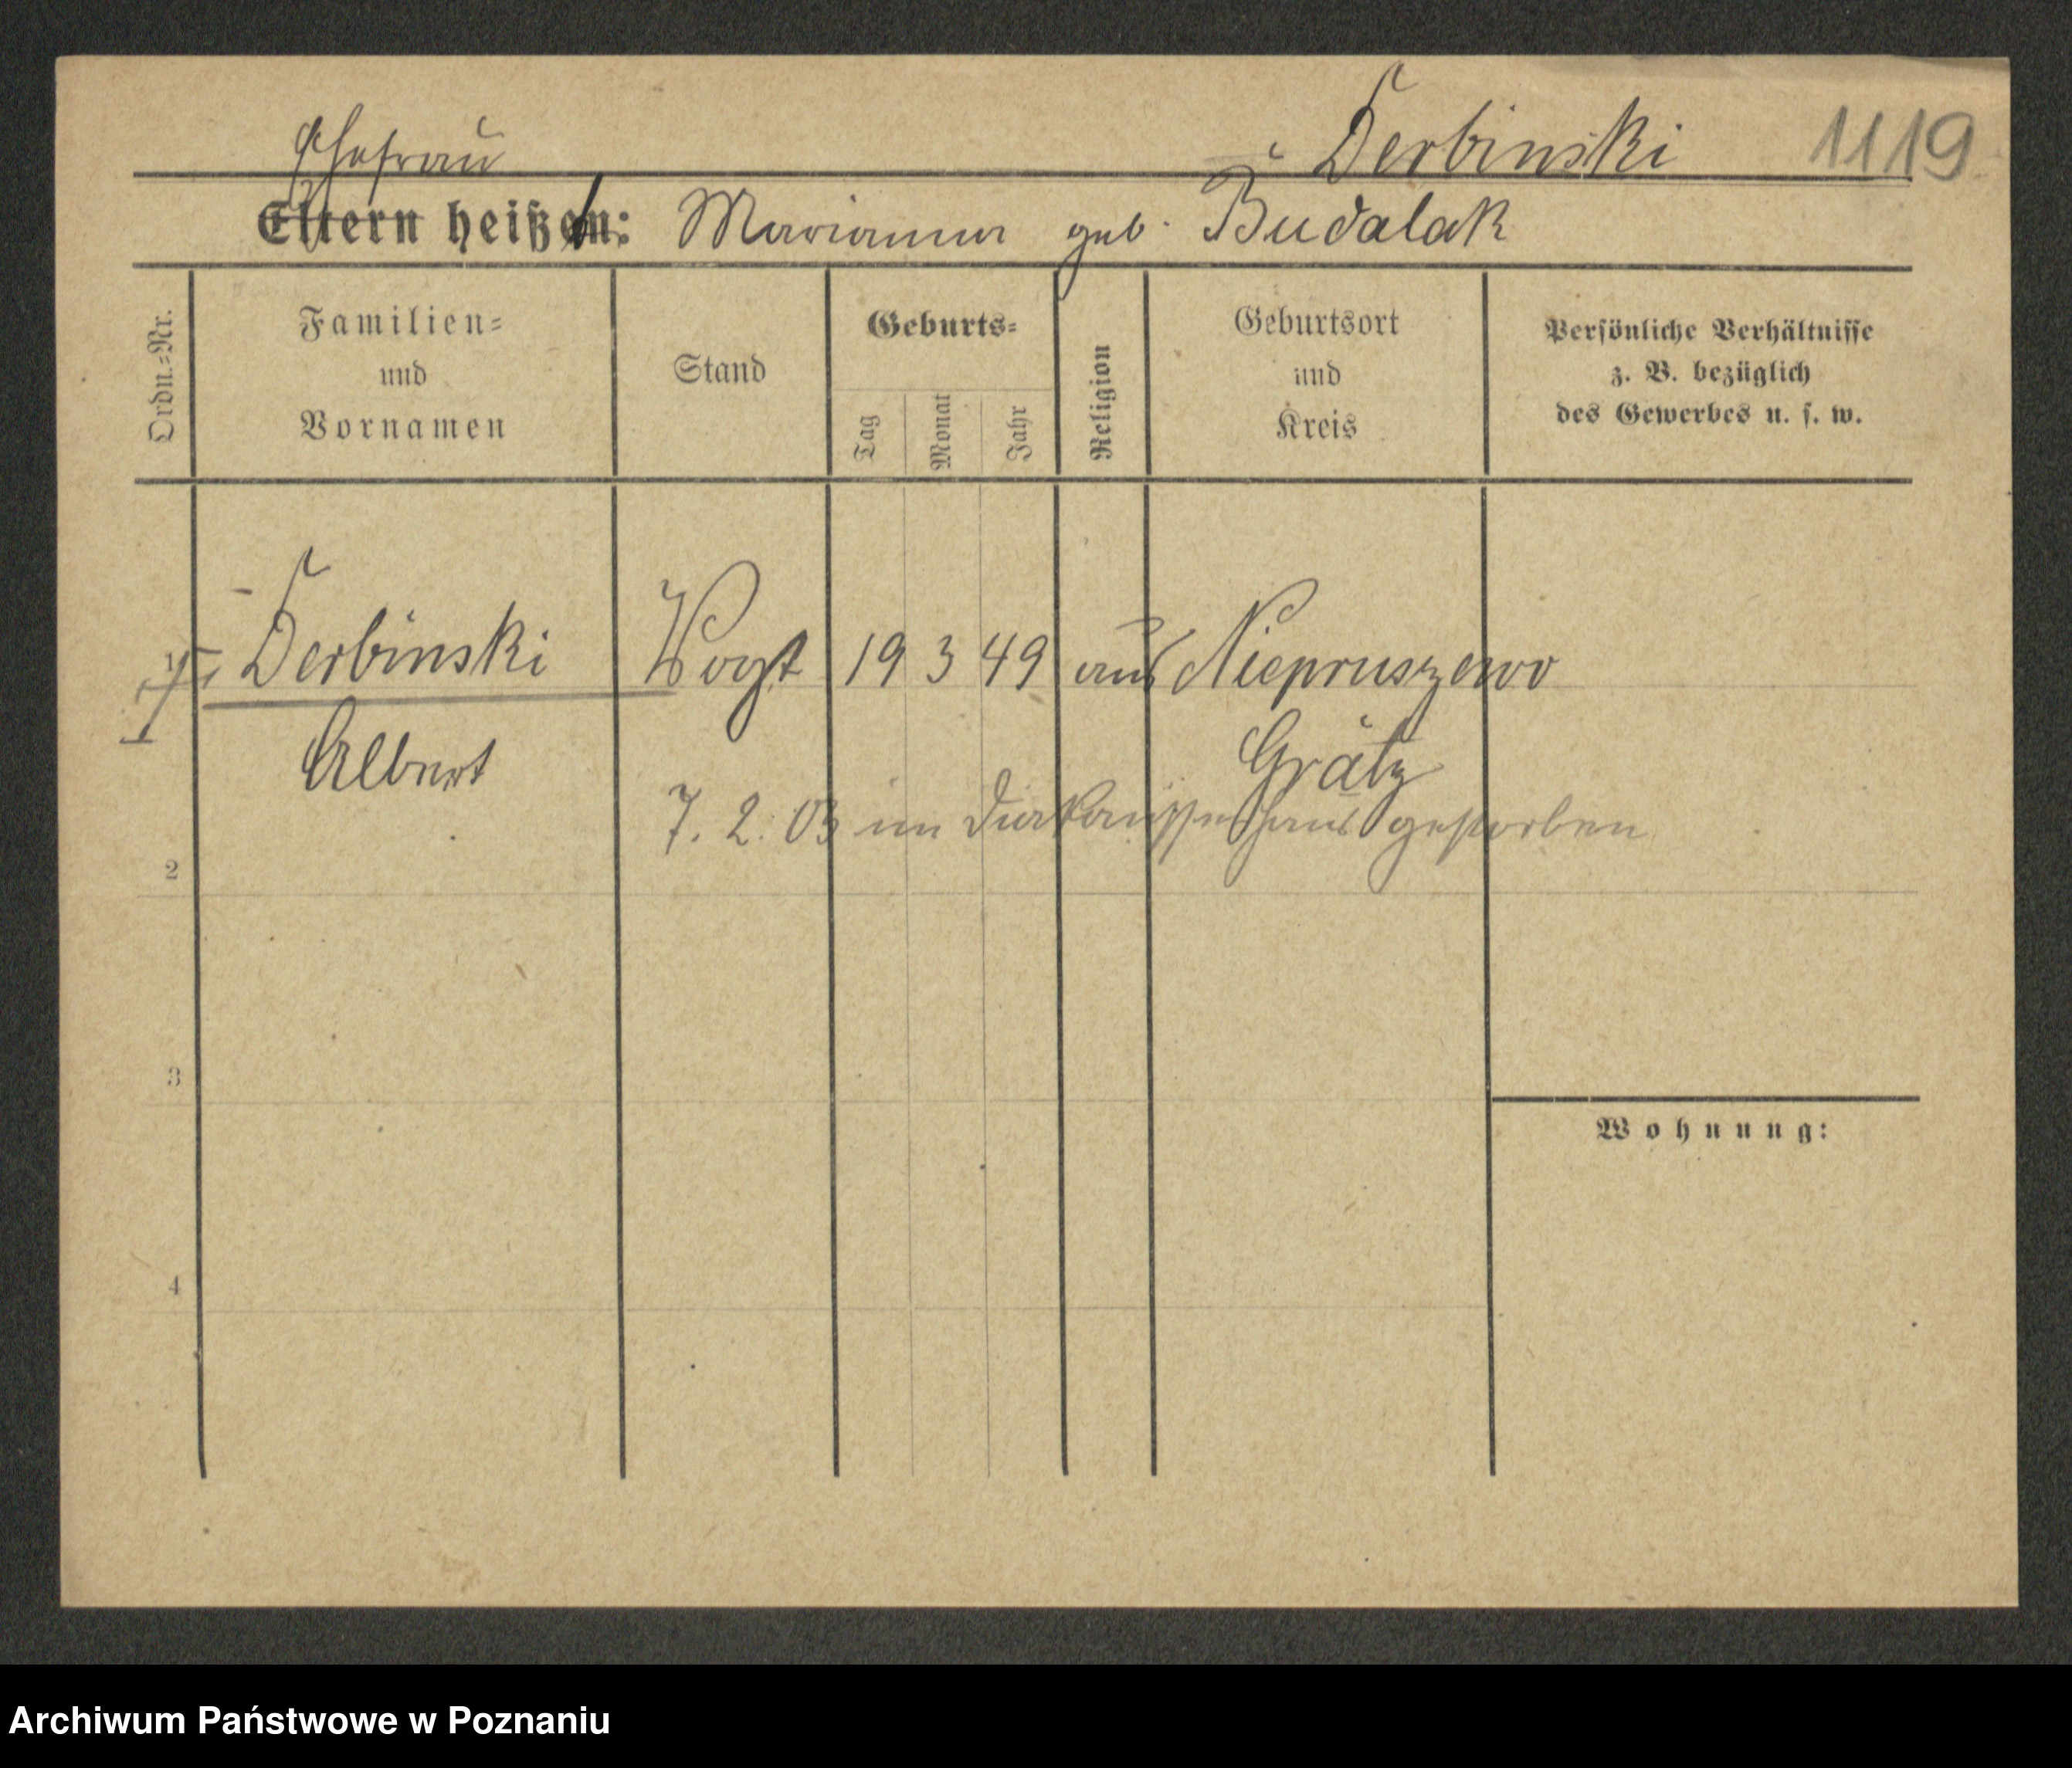 Derbinski 1119
Ehefrau
Eltern heißen: Marianna geb. Budalak
Ordn.-Nr.
Familien-
und
Vornamen
Stand
Geburts-
Tag
Monat
Jahr
Religion
Geburtsort
und
Kreis
Persönliche Verhältnisse
z. B. bezüglich
des Gewerbes u. s. w.
1 Derbinski Vogt 19 3 49 aus Niepruszewo
Albert Grätz
7. 2. 03 im Diakonissenhaus gestorben
2
3
Wohnung:
4
Archiwum Państwowe w Poznaniu